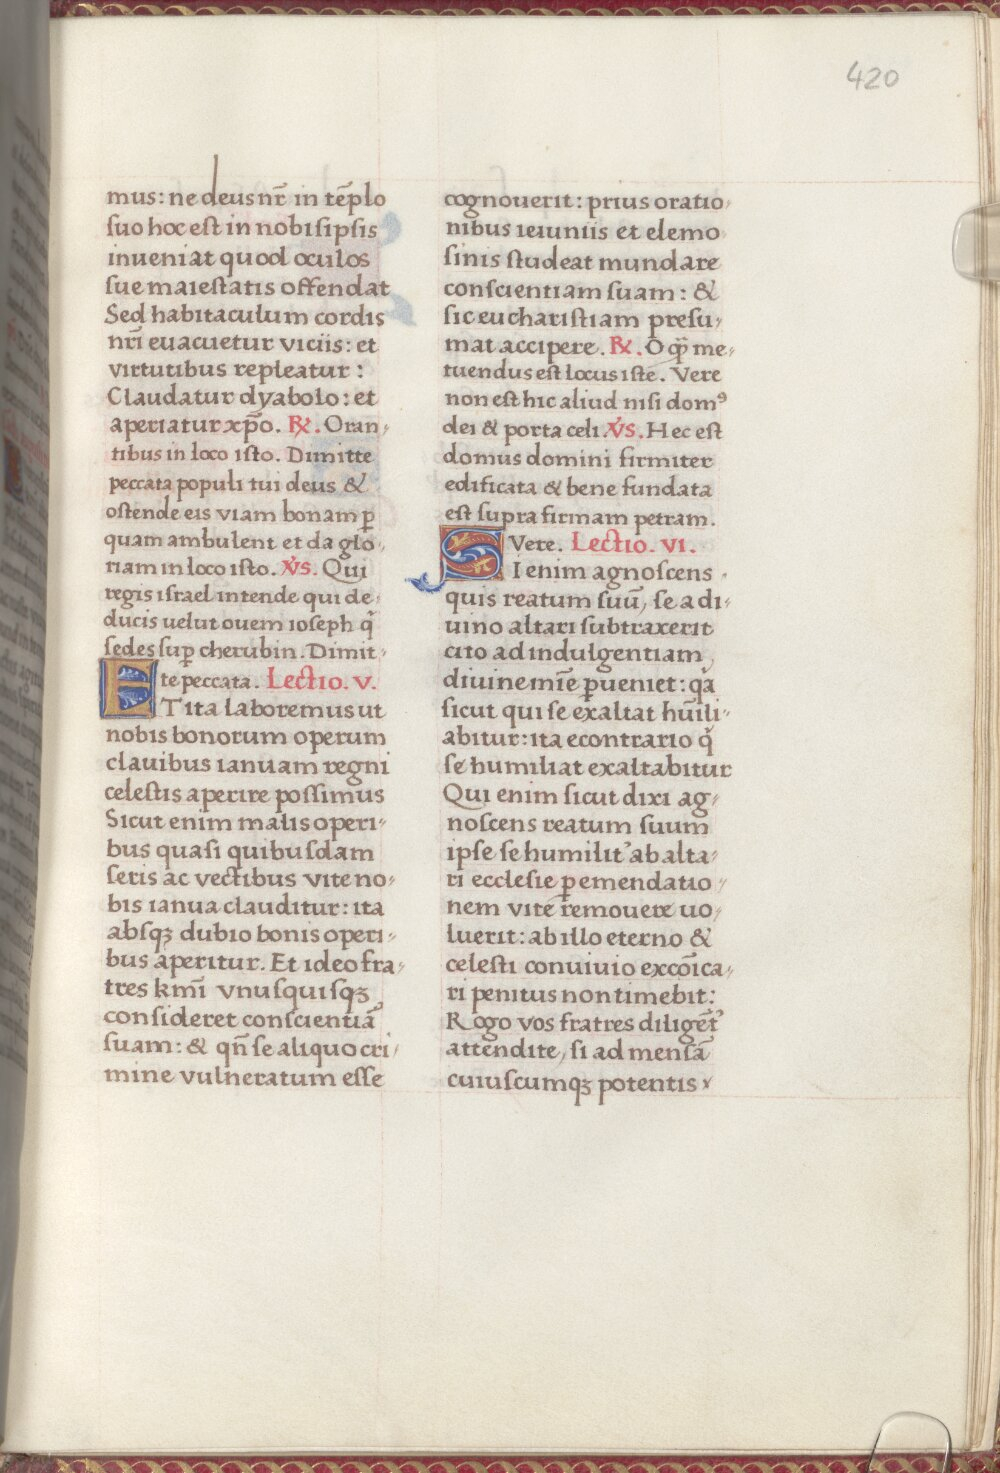 420
mus: ne deus nr̄ in tēplo
suo hoc est in nobis ipsis
inveniat quod oculos
sue maiestatis offendat
Sed habitaculum cordis
nr̄i euacuetur viciis: et
virtutibus repleatur:
Claudatur dyabolo: et
aperiatur xp̄o. ℟. Oran-
tibus in loco isto. Dimitte
peccata populi tui deus &
ostende eis viam bonam ꝑ
quam ambulent et da glo-
riam in loco isto. V̇S. Qui
regis israel intende qui de-
ducis uelut ouem ioseph q̇
sedes suꝑ cherubin. Dimit-
te peccata. Lectio. v.
ET ita laboremus ut
nobis bonorum operum
clauibus ianuam regni
celestis aperire possimus
Sicut enim malis operi-
bus quasi quibusdam
seris ac vectibus vite no-
bis ianua clauditur: ita
absqꝫ dubio bonis operi-
bus aperitur. Et ideo fra-
tres km̄i vnusquisqꝫ
consideret conscientiā
suam: & qn̄ se aliquo cri-
mine vulneratum esse
cognouerit: prius oratio-
nibus ieiuniis et elemo
sinis studeat mundare
conscientiam suam: &
sic eucharistiam presu-
mat accipere. ℟. O qꝫ̄ me-
tuendus est locus iste. Vere
non est hic aliud nisi domꝰ
dei & porta celi. V̇S. Hec est
domus domini firmiter
edificata & bene fundata
est supra firmam petram.
Vere. Lectio. VI.
SI enim agnoscens
quis reatum suū, se a di-
uino altari subtraxerit
cito ad indulgentiam
diuine mīe ꝑueniet: qȧ
sicut qui se exaltat hūili-
abitur: ita econtrario q̇
se humiliat exaltabitur
Qui enim sicut dixi ag-
noscens reatum suum
ipse se humilit᾽ ab alta-
ri ecclesie ꝑ emendatio-
nem vite remouere uo-
luerit: ab illo eterno &
celesti conuiuio excōica-
ri penitus non timebit:
Rogo vos fratres diligēt᾽
attendite, si ad mensā
cuiuscumqꝫ potentis